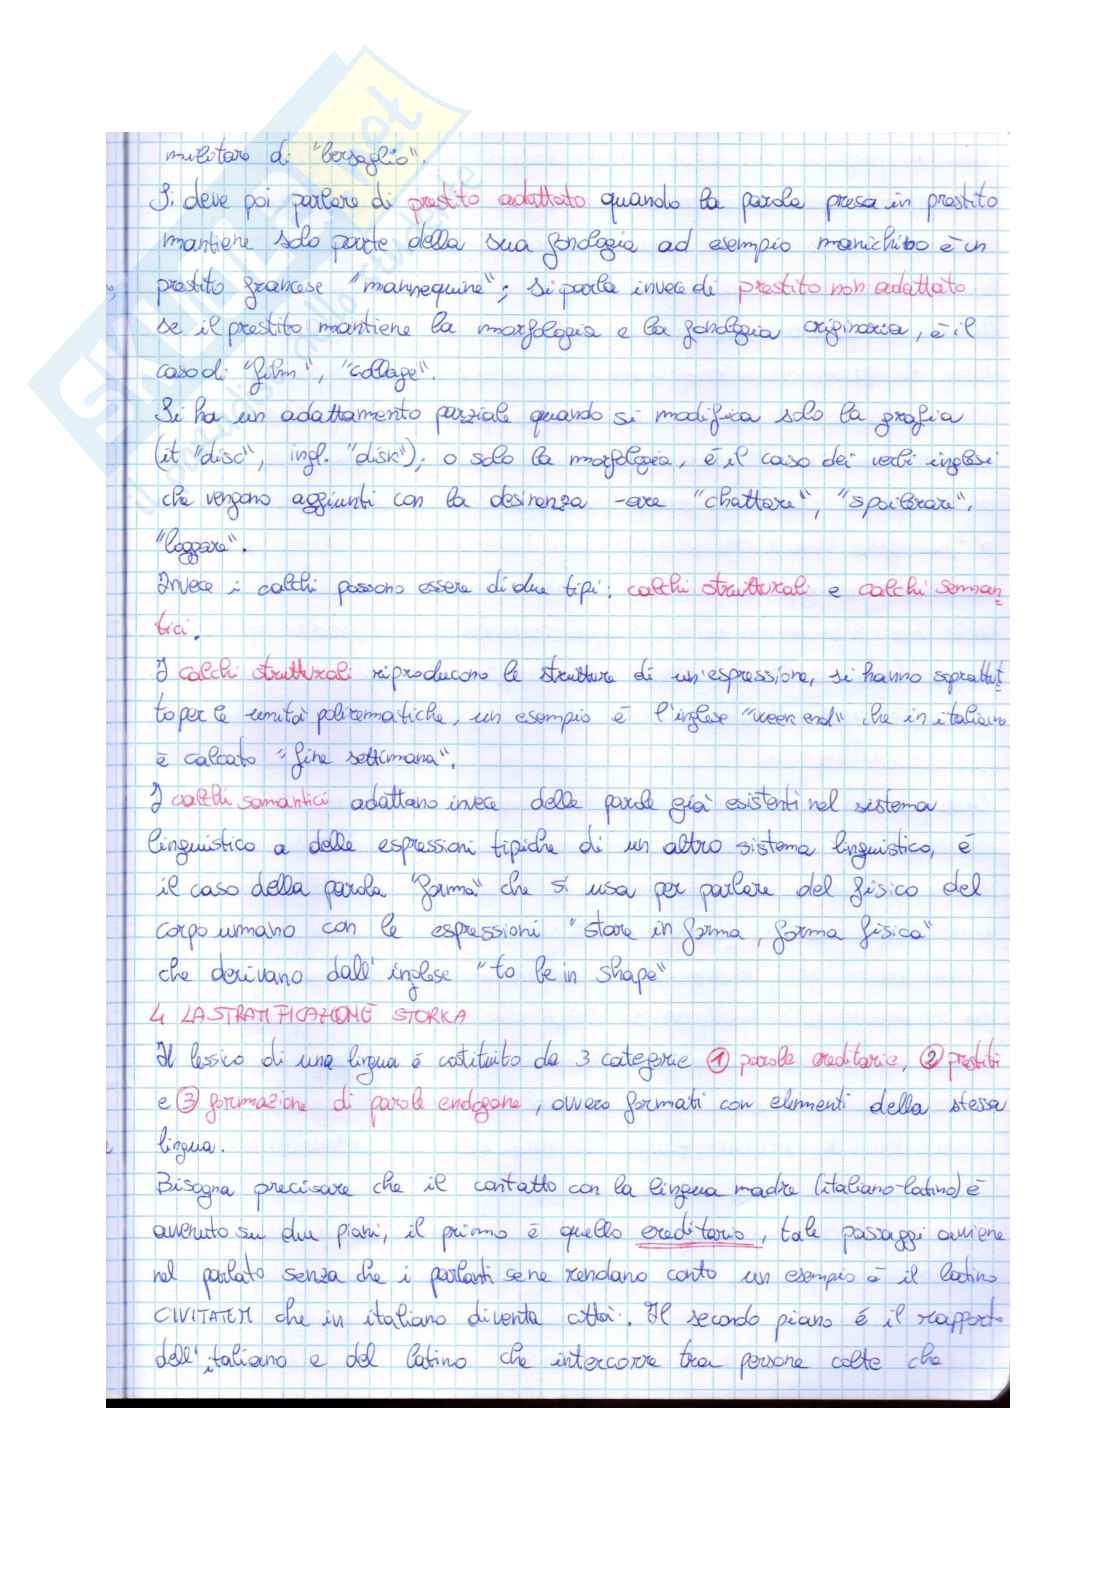 militare di "bersaglio".
Si deve poi parlare di prestito adattato quando la parola presa in prestito
mantiene solo parte della sua fonologia ad esempio manichino è un
prestito francese "mannequine"; si parla invece di prestito non adattato
se il prestito mantiene la morfologia e la fonologia originaria, è il
caso di "film", "collage".
Si ha un adattamento parziale quando si modifica solo la grafia
(it "disco", ingl. "disk"); o solo la morfologia, è il caso dei verbi inglesi
che vengono aggiunti con la desinenza -are "chattare", "spoilerare",
"loggare".
Invece i calchi possono essere di due tipi: calchi strutturali e calchi seman
tici.
I calchi strutturali riproducono le strutture di un'espressione, si hanno soprattut
to per le unità polirematiche, un esempio è l'inglese "week end" che in italiano
è calcato "fine settimana".
I calchi semantici adattano invece delle parole già esistenti nel sistema
linguistico a delle espressioni tipiche di un altro sistema linguistico, è
il caso della parola "forma" che si usa per parlare del fisico del
corpo umano con le espressioni "stare in forma, forma fisica"
che derivano dall'inglese "to be in shape"
4 LA STRATIFICAZIONE STORICA
Il lessico di una lingua è costituito da 3 categorie ① parole ereditarie, ② prestiti
e ③ formazione di parole endogene, ovvero formati con elementi della stessa
lingua.
Bisogna precisare che il contatto con la lingua madre (italiano-latino) è
avvenuto su due piani, il primo è quello ereditario, tale passaggi avviene
nel parlato senza che i parlanti se ne rendano conto un esempio è il latino
CIVITATEM che in italiano diventa città. Il secondo piano è il rapporto
dell'italiano e del latino che intercorre tra persone colte che